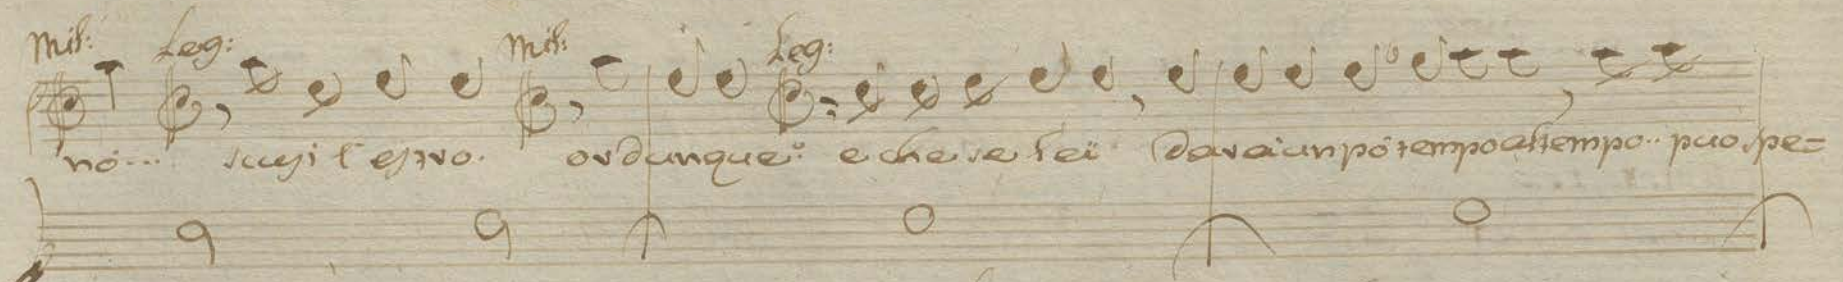 Mit: Leg: Mit: Leg:
no... scusi l'estro. or dunque: e che se lei darai un pó tempo al tempo.. puo spe=